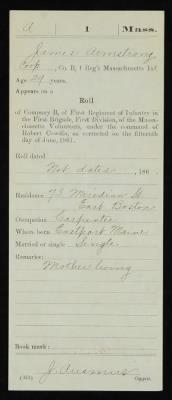 A | 1 | Mass.
James Armstrong
Corp., Co. B, 1 Reg't Massachusetts Inf.
Age 29 years.
Appears on a
Roll
of Company B, of First Regiment of Infantry in
the First Brigade, First Division, of the Massa-
chusetts Volunteers, under the command of
Robert Cowdin, as corrected on the fifteenth
day of June, 1861.
Roll dated
Not dated, 186 .
Residence 73 Meridian St
East Boston
Occupation Carpenter
Where born Eastport Maine
Married or single Single
Remarks:
Mother living
Book mark:
Copyist.